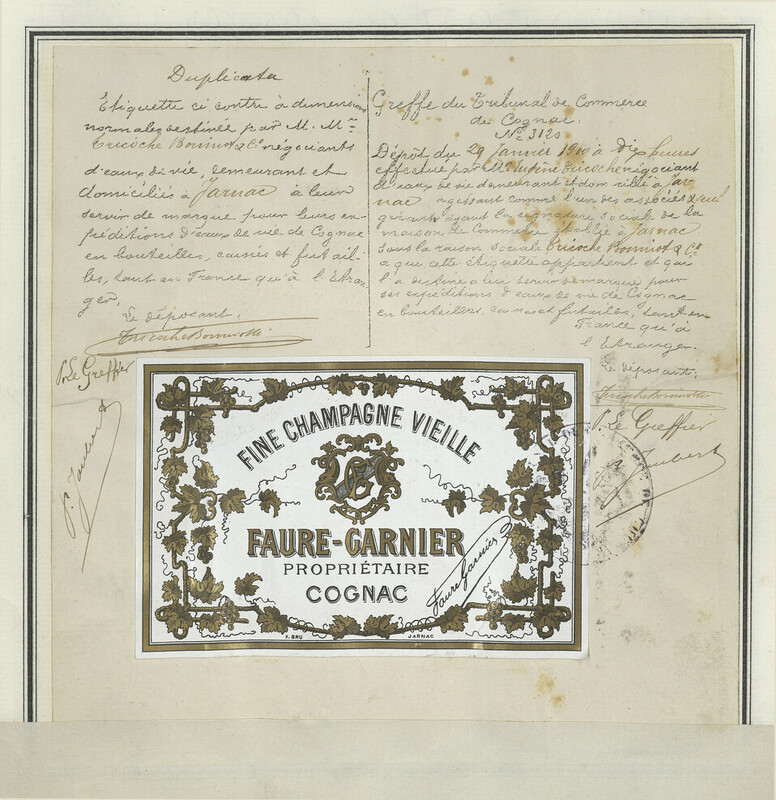 Duplicata
Étiquette ci contre à dimension
normale destinée par M. Mrs
Tricoche Bonniot & Cie négociants
d'eaux de vie, demeurant et
domiciliés à Jarnac à leur
servir de marque pour leurs ex-
péditions d'eaux de vie de Cognac
en bouteilles, caisses et futail-
les, tant en France qu'à l'Etran-
ger.
Le déposant.
Tricoche Bonniot & Cie
P. Le Greffier
P. Joubert
Greffe du Tribunal de Commerce
de Cognac.
No 3120
Dépôt du 29 Janvier 1900 à dix heures
effectué par Mr Tricoche négociant
d'eaux de vie demeurant et domicilié à Jar
nac agissant comme l'un des associés
gérants ayant la signature sociale de la
maison de Commerce établie à Jarnac
sous la raison sociale Tricoche Bonniot & Cie
à qui cette étiquette appartient et qui
l'a destinée à leur servir de marque pour
ses expéditions d'eaux de vie de Cognac
en bouteilles, caisses et futailles, tant en
France qu'à
l'Etranger.
Le déposant.
Tricoche Bonniot & Cie
P. Le Greffier
P. Joubert
FINE CHAMPAGNE VIEILLE
FAURE-GARNIER
PROPRIÉTAIRE
COGNAC
Faure Garnier
F. BRU JARNAC